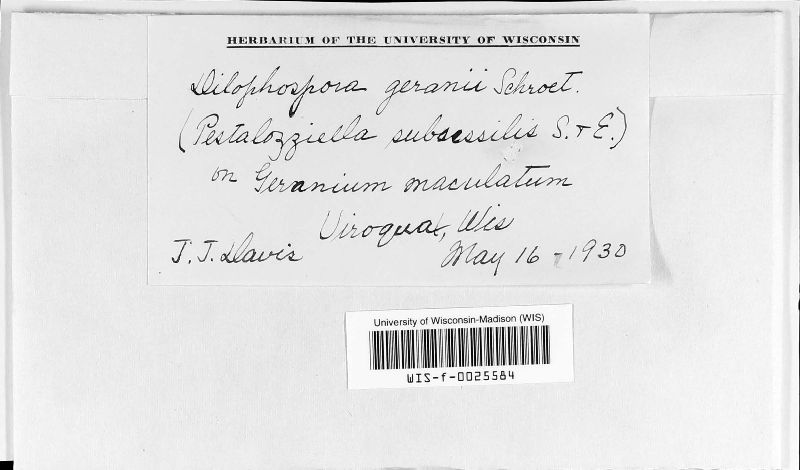 HERBARIUM OF THE UNIVERSITY OF WISCONSIN
Dilophospora geranii Schroet.
(Pestalozziella subsessilis S. + E.)
on Geranium maculatum
Viroqua, Wis
J. J. Davis May 16 - 1930
University of Wisconsin-Madison (WIS)
WIS-f-0025584